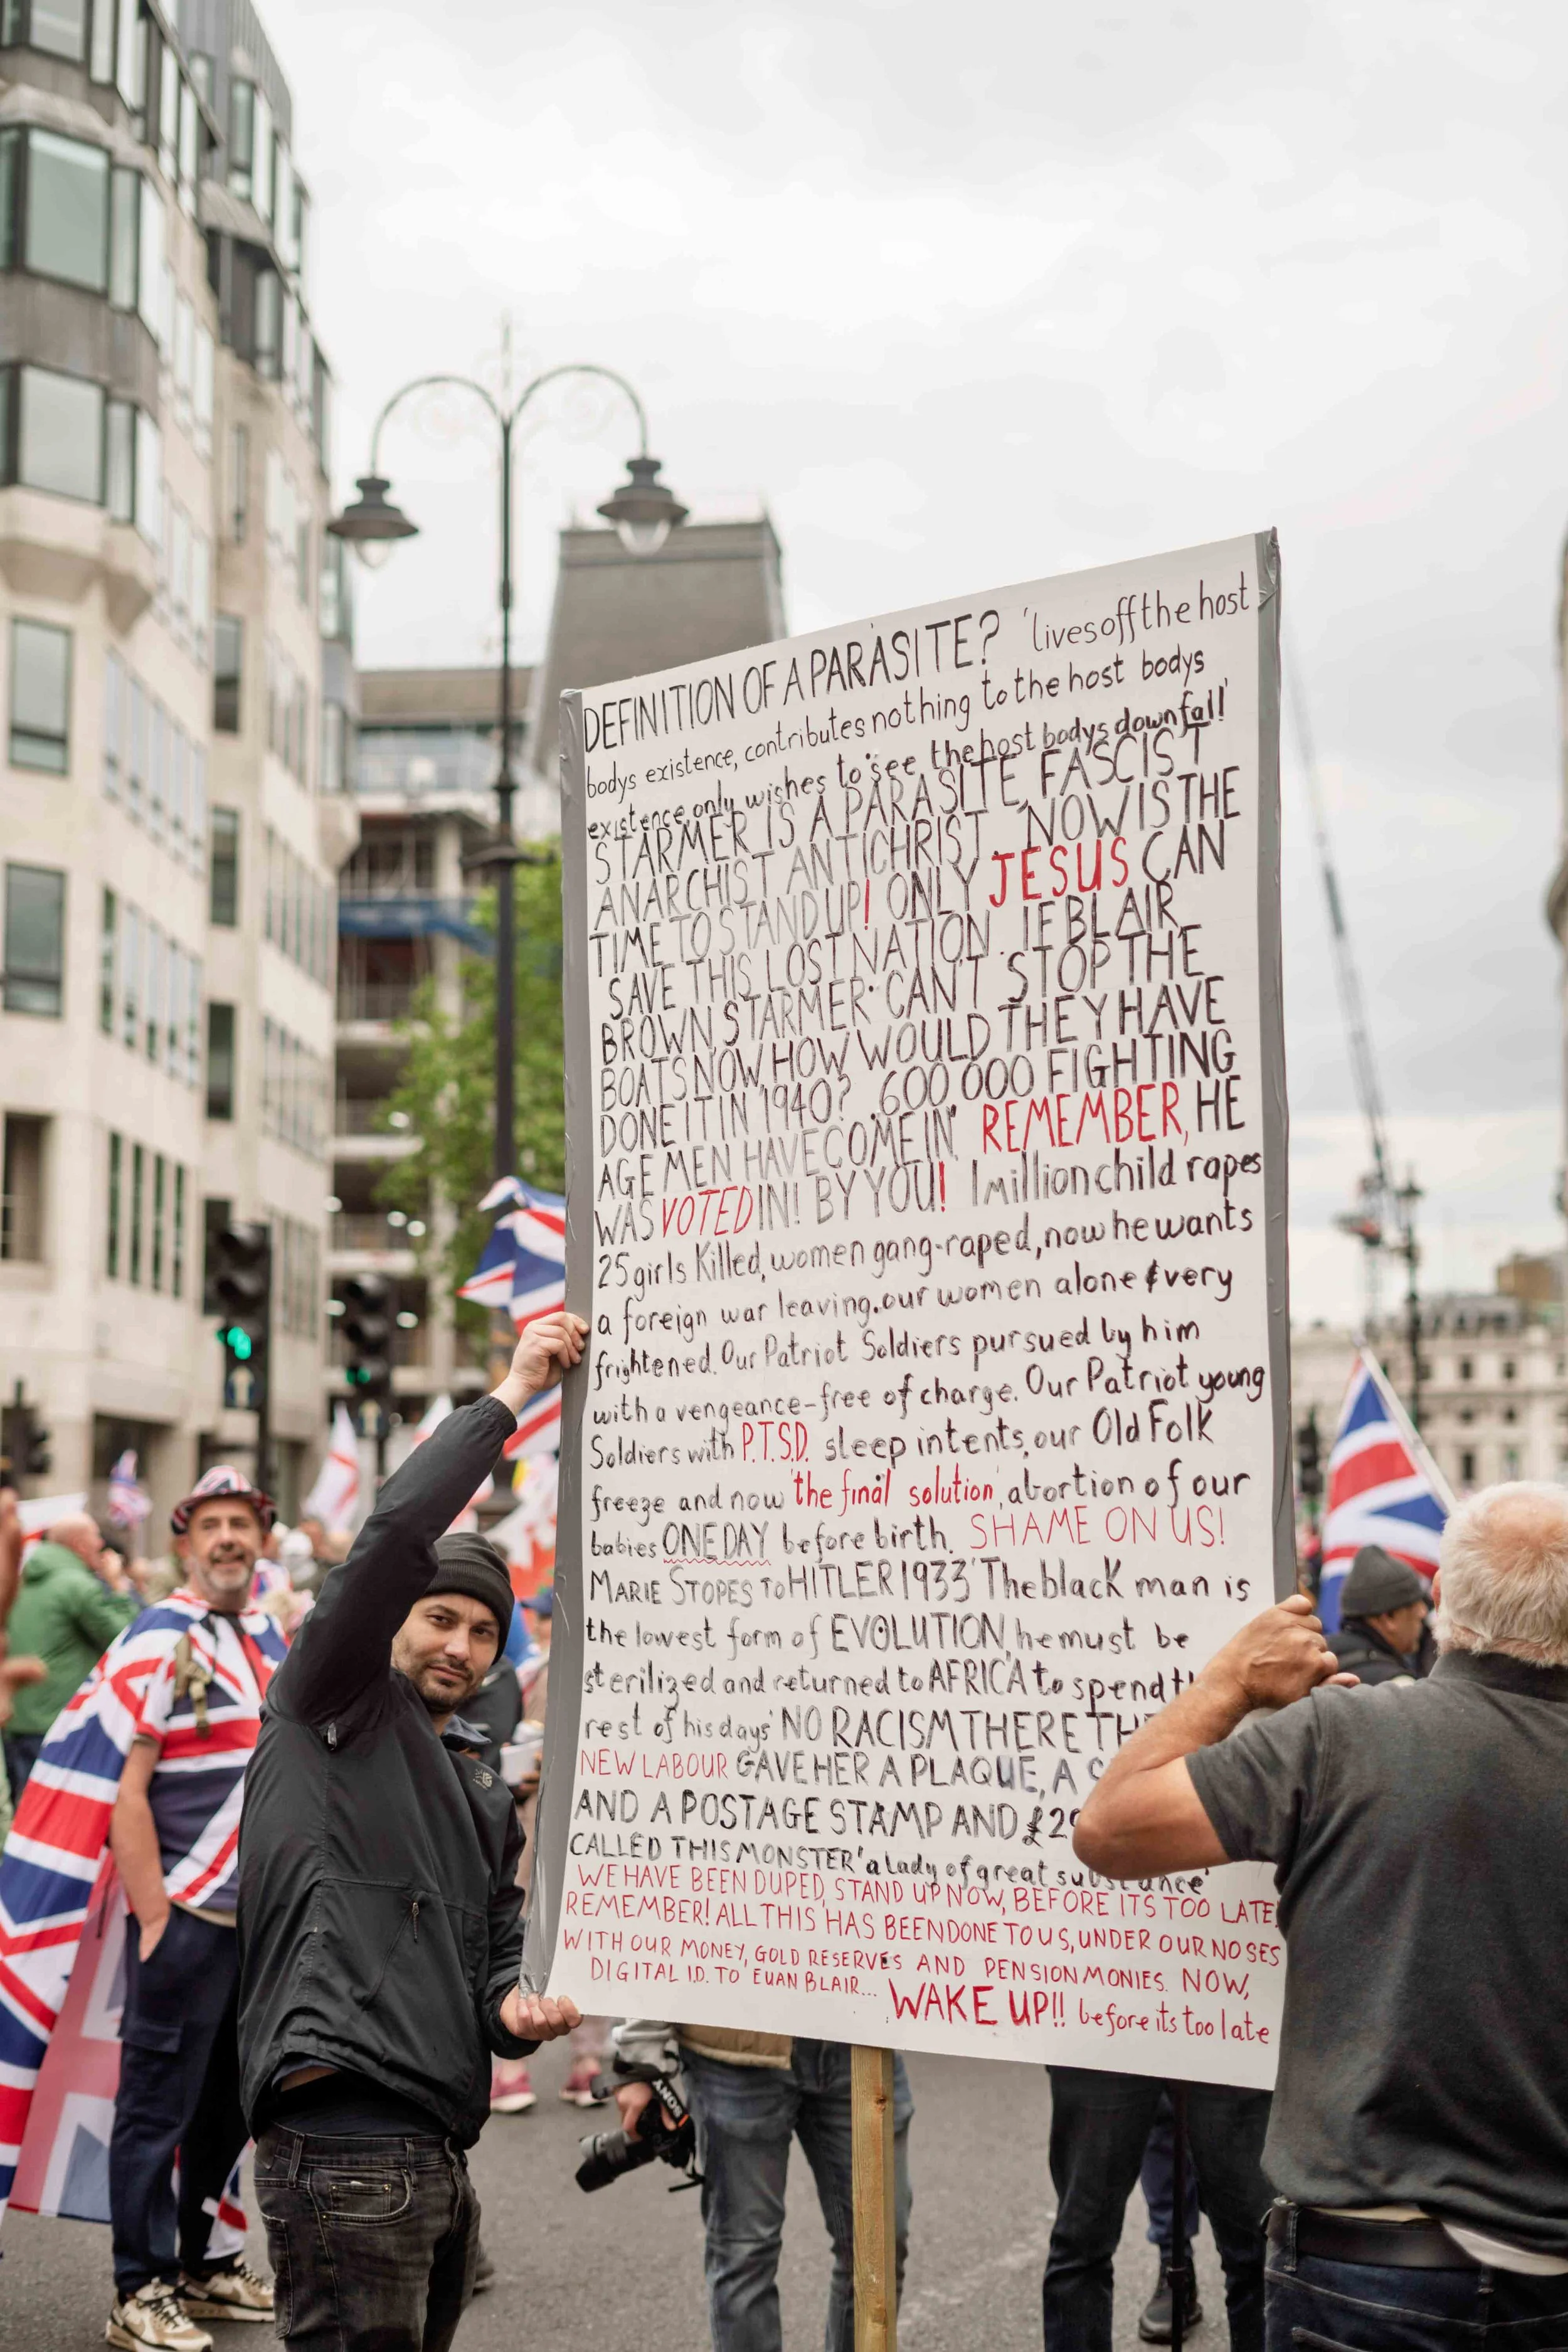 DEFINITION OF A PARASITE? 'lives off the host
bodys existence, contributes nothing to the host bodys
existence, only wishes to see the host bodys downfall!'
STARMER IS A PARASITE, FASCIST
ANARCHIST ANTICHRIST. NOW IS THE
TIME TO STAND UP! ONLY JESUS CAN
SAVE THIS LOST NATION. IF BLAIR,
BROWN, STARMER CAN'T STOP THE
BOATS NOW, HOW WOULD THEY HAVE
DONE IT IN 1940? 600 000 FIGHTING
AGE MEN HAVE COME IN. REMEMBER, HE
WAS VOTED IN! BY YOU! 1 million child rapes
25 girls Killed, women gang-raped, now he wants
a foreign war leaving our women alone & very
frightened. Our Patriot Soldiers pursued by him
with a vengeance-free of charge. Our Patriot young
Soldiers with P.T.S.D. sleep in tents, our Old Folk
freeze and now 'the final solution', abortion of our
babies ONE DAY before birth. SHAME ON US!
MARIE STOPES TO HITLER 1933 'The black man is
the lowest form of EVOLUTION, he must be
sterilized and returned to AFRICA to spend
rest of his days' NO RACISM THERE
NEW LABOUR GAVE HER A PLAQUE, A
AND A POSTAGE STAMP AND
CALLED THIS MONSTER 'a lady of great substance'
WE HAVE BEEN DUPED, STAND UP NOW, BEFORE ITS TOO LATE
REMEMBER! ALL THIS HAS BEEN DONE TO US, UNDER OUR NOSES
WITH OUR MONEY, GOLD RESERVES AND PENSION MONIES. NOW,
DIGITAL I.D. TO EUAN BLAIR... WAKE UP!! before its too late
SONY